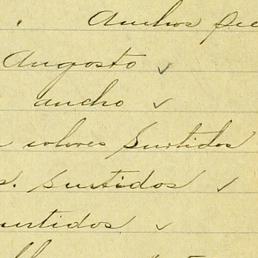 . Anchos
Angosto ✓
ancho ✓
colores Surtidos
s. Surtidos ✓
surtidos ✓